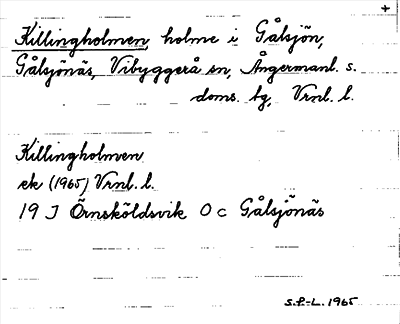 +
Killingholmen, holme i Gålsjön,
Gålsjönäs, Vibyggerå sn, Ångermanl. s.
doms. tg, Vrnl. l.
Killingholmen
ek (1965) Vrnl. l.
19 J Örnsköldsvik O c Gålsjönäs
S.P-L. 1965